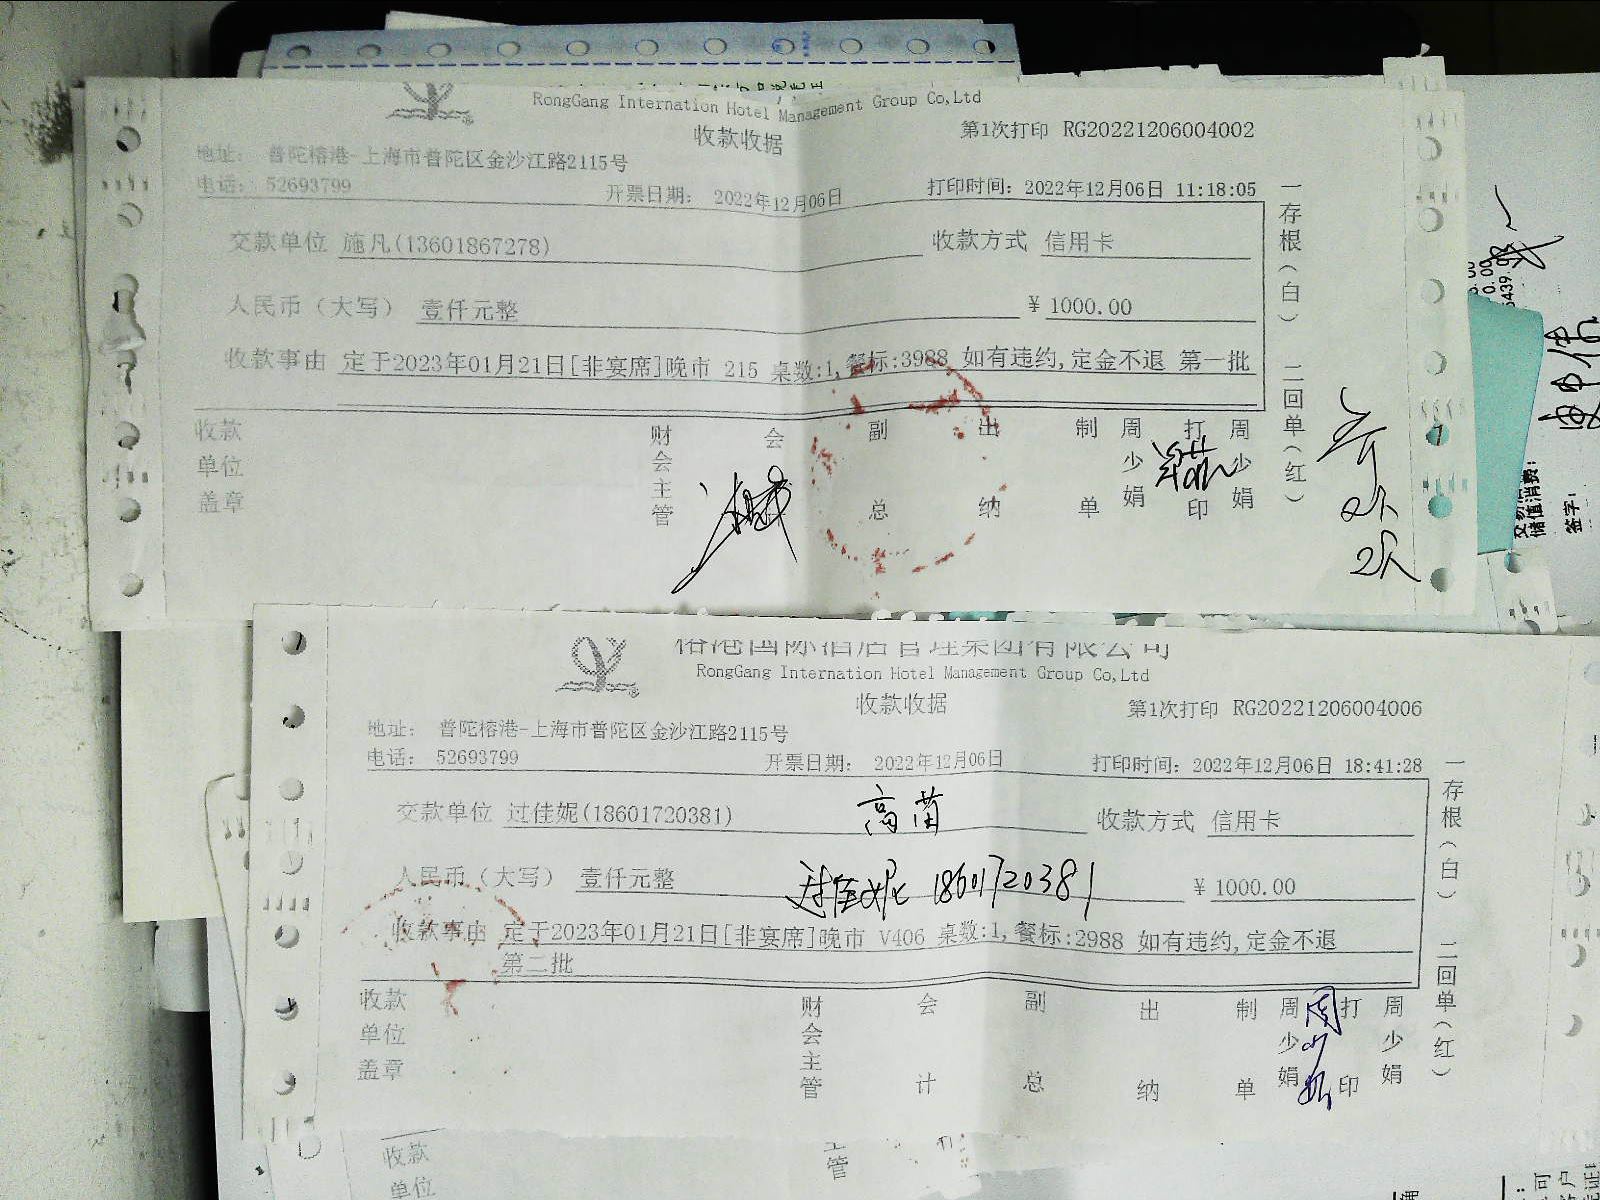 RongGang Internation Hotel Management Group Co,Ltd
收款收据
第1次打印 RG20221206004002
地址： 普陀榕港-上海市普陀区金沙江路2115号
电话： 52693799
开票日期： 2022年12月06日
打印时间：2022年12月06日 11:18:05
交款单位 施凡(13601867278)
收款方式 信用卡
人民币（大写） 壹仟元整
¥ 1000.00
收款事由 定于2023年01月21日[非宴席]晚市 215 桌数:1,餐标:3988 如有违约,定金不退 第一批
收款单位盖章
财会主管
会
副总
出纳
制单
周少娟
打印
周少娟
一存根(白) 二回单(红)
储值消费：
签字：
榕港国际酒店管理集团有限公司
RongGang Internation Hotel Management Group Co,Ltd
收款收据
第1次打印 RG20221206004006
地址： 普陀榕港-上海市普陀区金沙江路2115号
电话： 52693799
开票日期： 2022年12月06日
打印时间：2022年12月06日 18:41:28
交款单位 过佳妮(18601720381)
高菌
收款方式 信用卡
人民币（大写） 壹仟元整
过佳妮 18601720381
¥ 1000.00
收款事由 定于2023年01月21日[非宴席]晚市 V406 桌数:1,餐标:2988 如有违约,定金不退
第二批
收款单位盖章
财会主管
会计
副总
出纳
制单
周少娟
周少娟
打印
周少娟
一存根(白) 二回单(红)
收款
单位
管